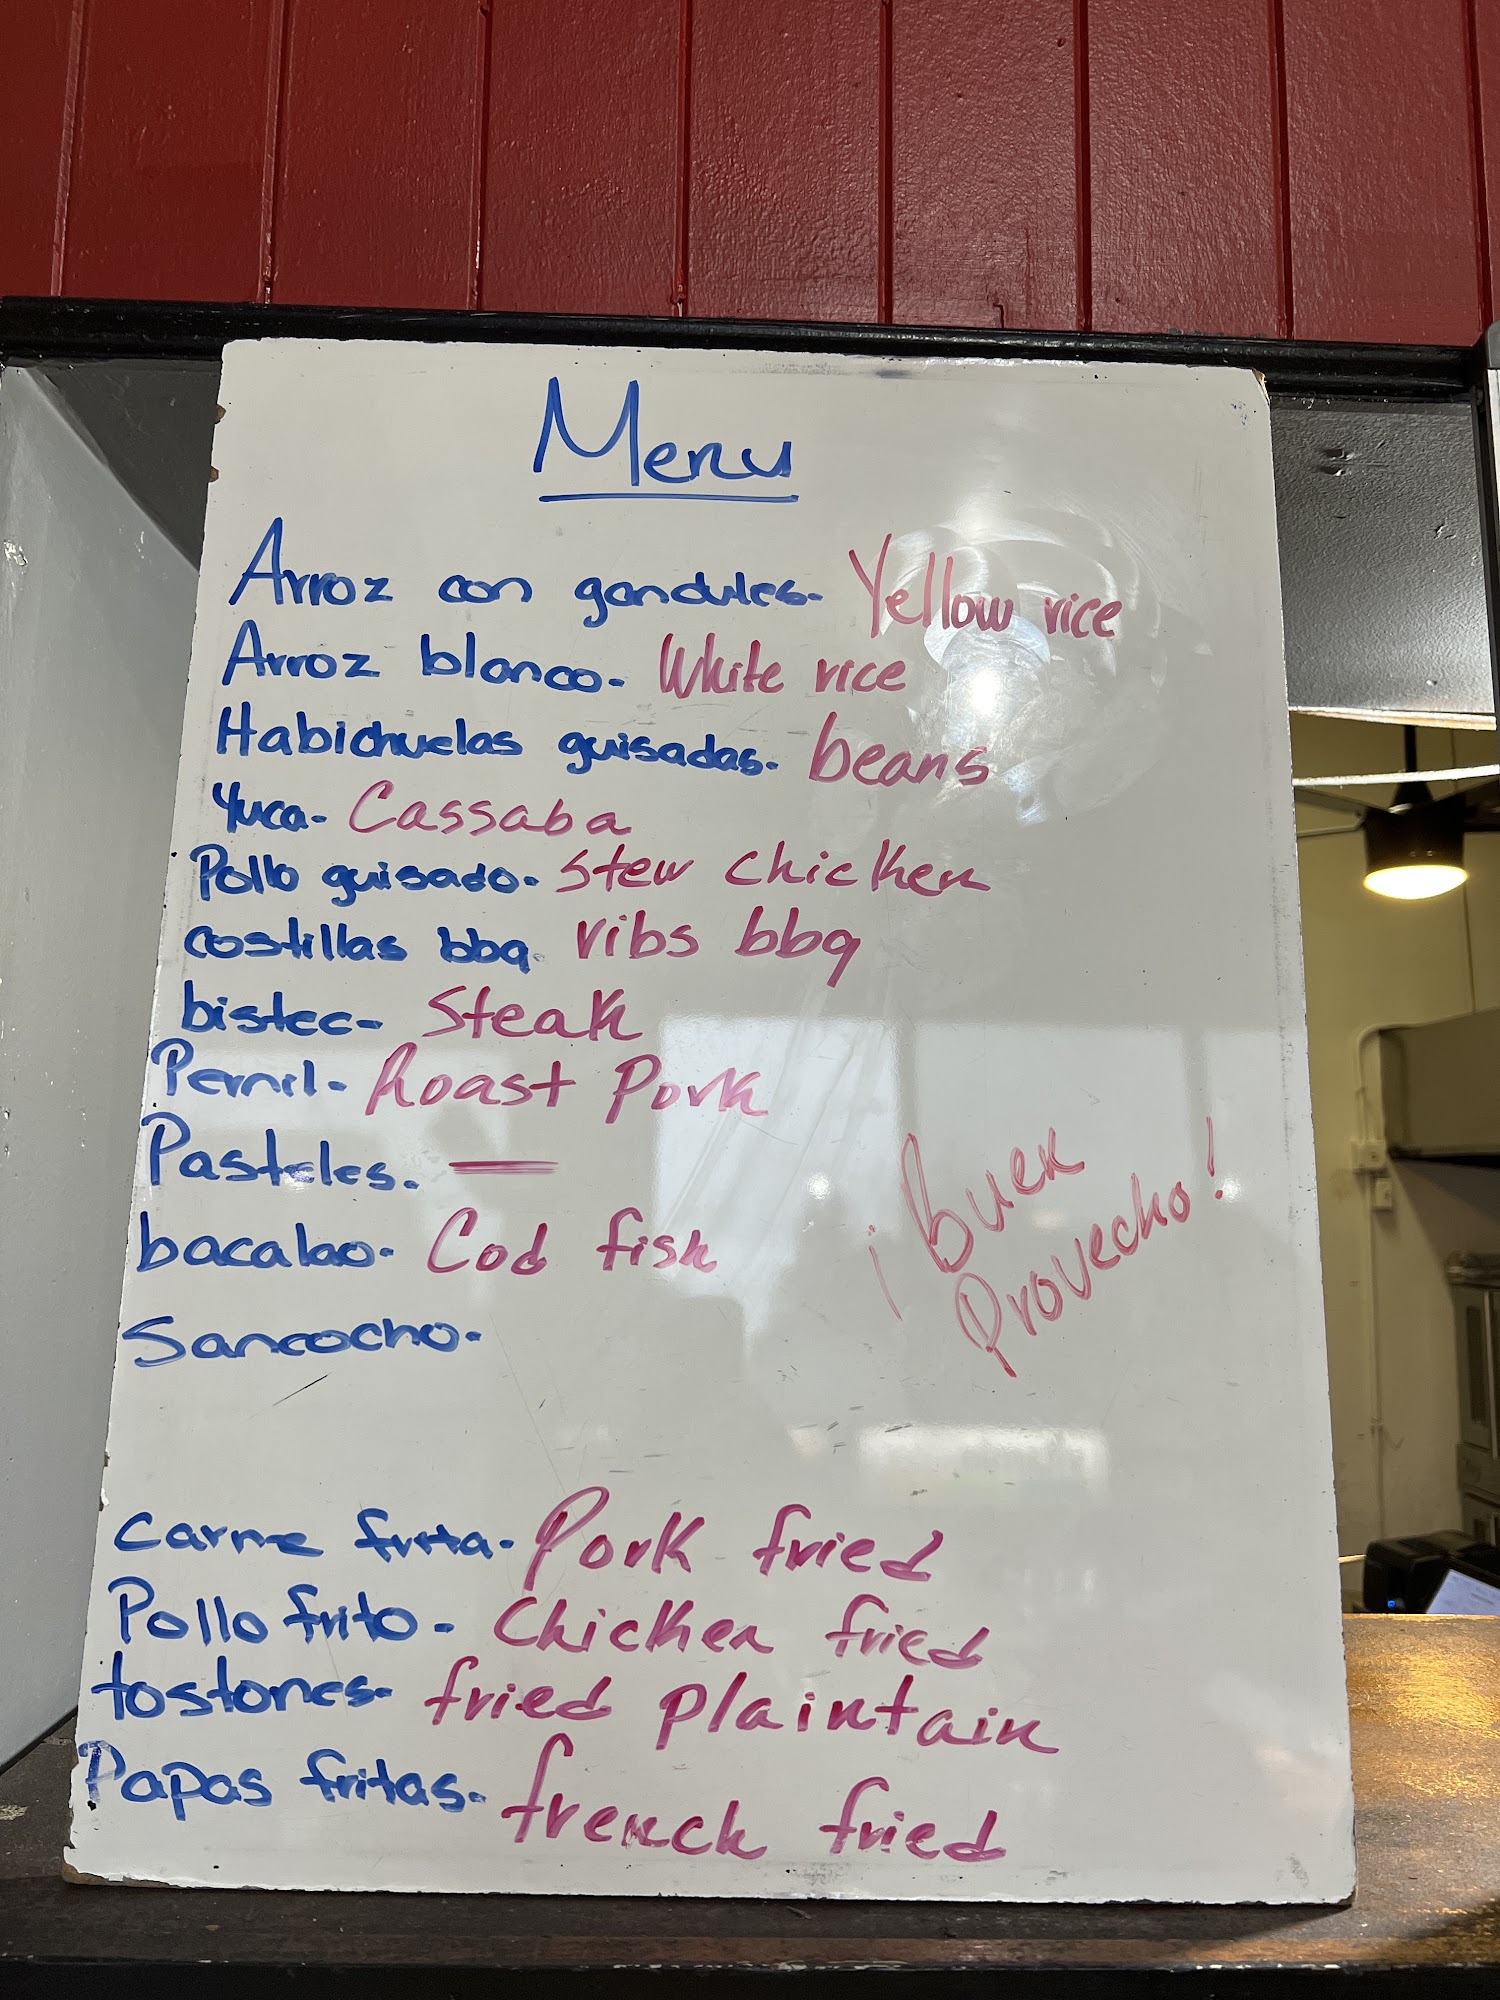 Menu
Arroz con gandules- Yellow rice
Arroz blanco- White rice
Habichuelas guisadas- beans
Yuca- Cassaba
Pollo guisado- Stew chicken
costillas bbq- ribs bbq
bistec- Steak
Pernil- Roast Pork
Pasteles. —
bacalao- Cod fish
Sancocho-
¡Buen
Provecho!
carne frita- Pork fried
Pollo frito- Chicken fried
tostones- fried plaintain
Papas fritas- french fried